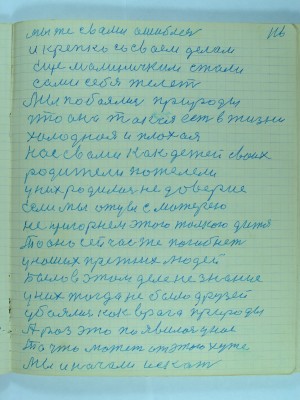 мы же с вами ошиблись 116
и крепко со своем делам
еще маленичким стали
сами себя желет
Мы побоялися природы
што она такая ест в жизни
холодная и плохая
нас с вами как детей своих
родители пожелели
у них родилися не доверие
если мы
не
То оно сейчас же погибнет
у наших прежних людей
Было в этом деле не знание
у них тогда не было друзей
убоялис как врага природы
А раз это появилос у нас
То что может от этого хуже
Мы и начали искат